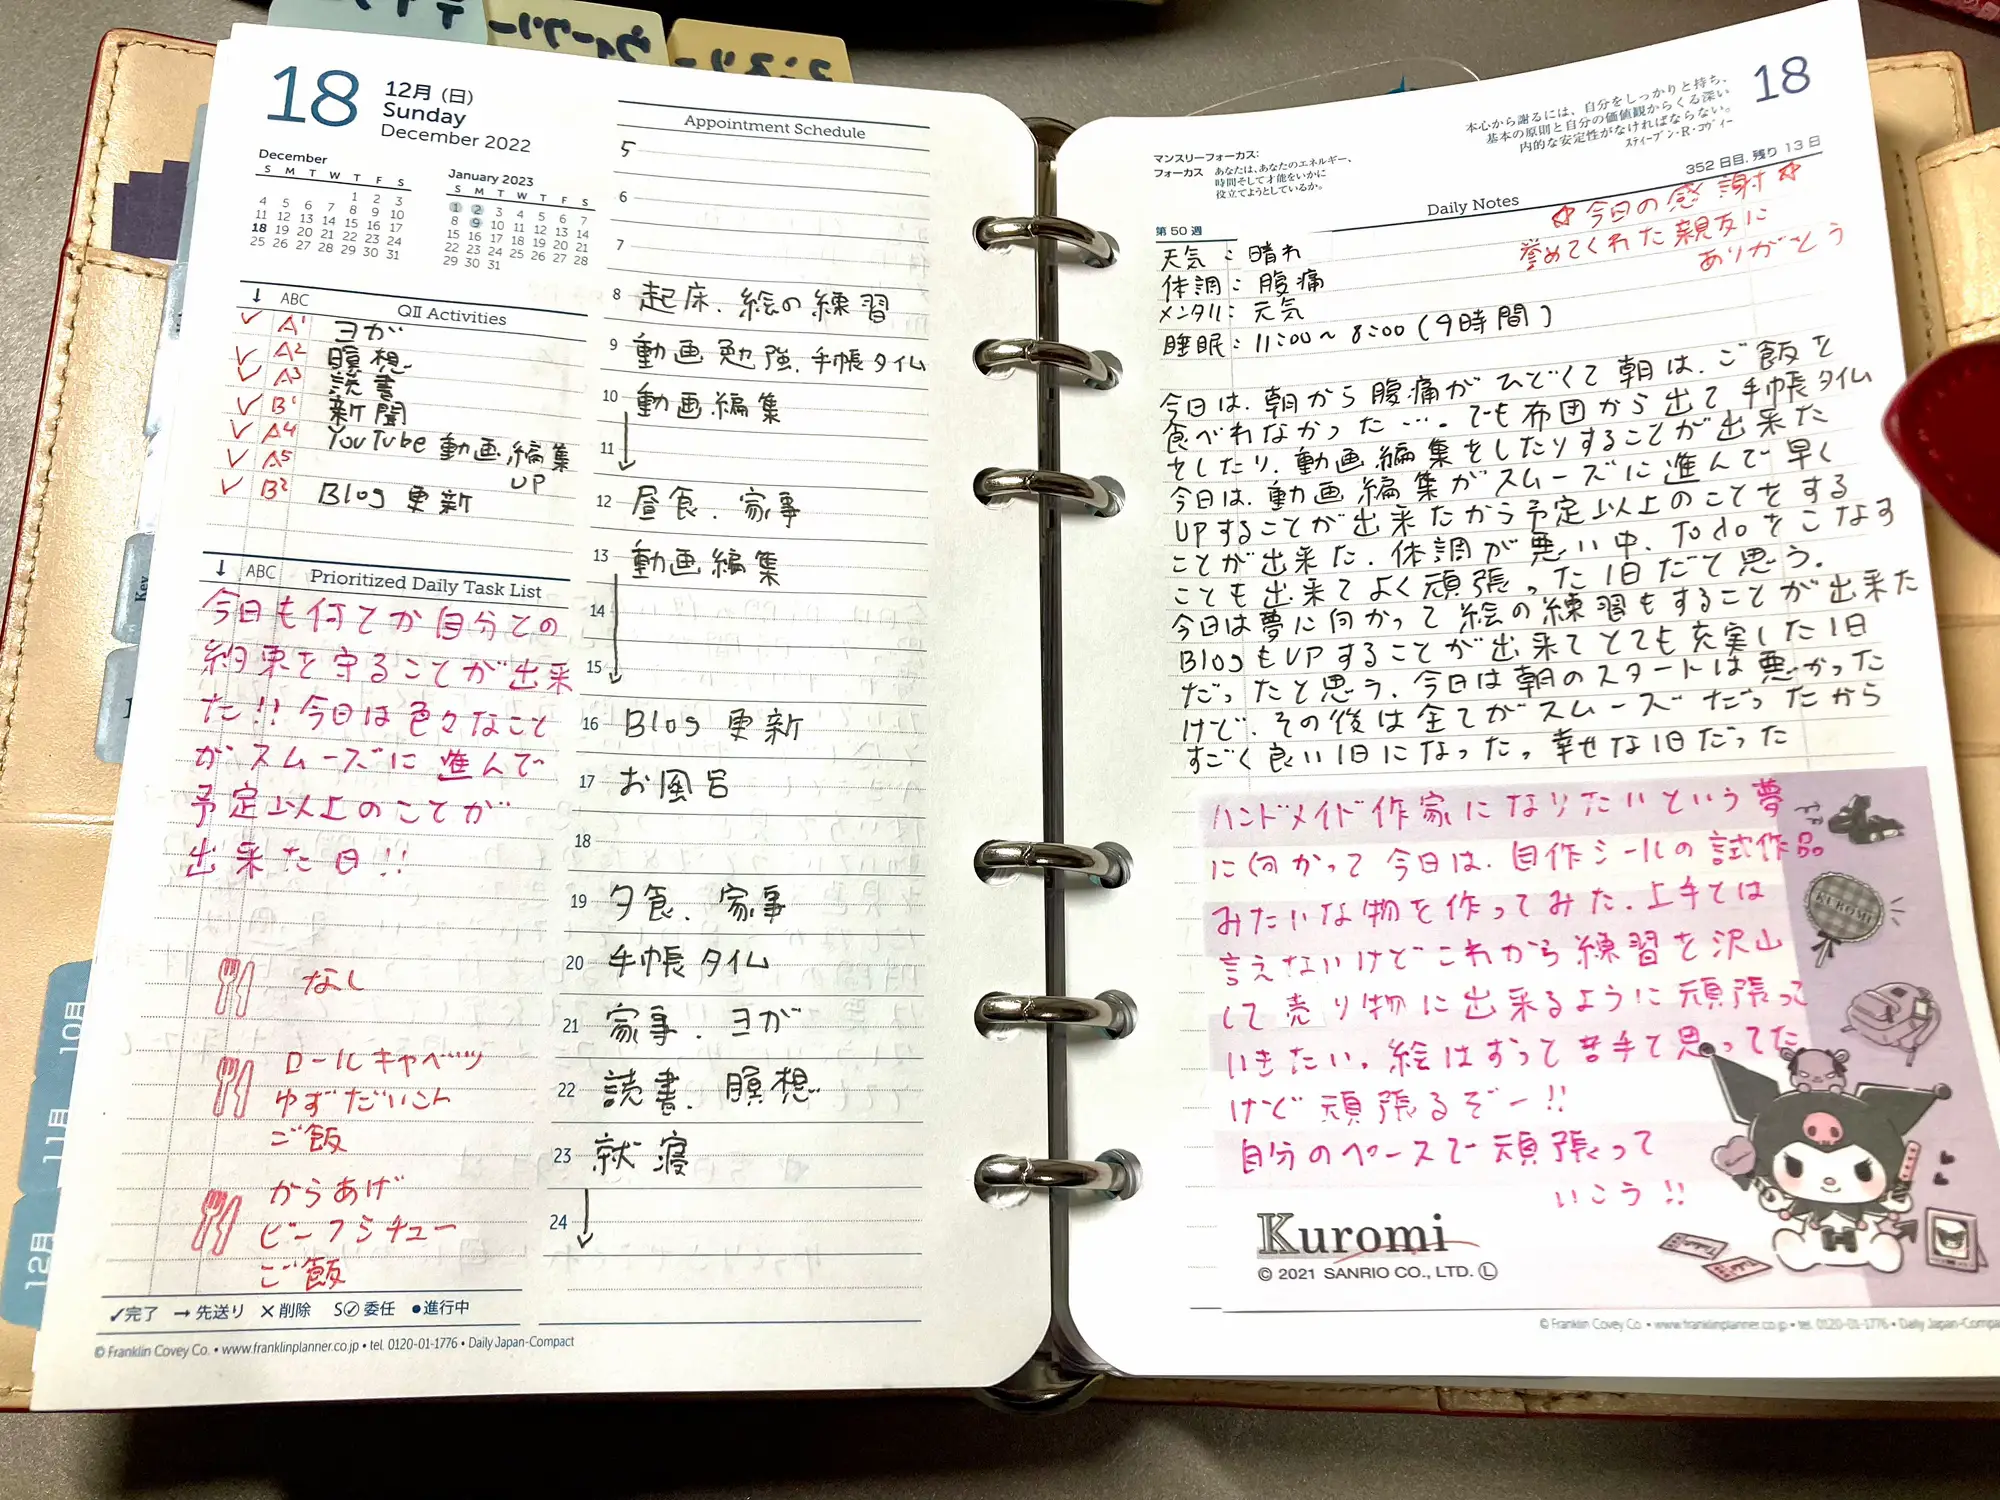 18
12月 (日)
Sunday
December 2022
December
S M T W T F S
1 2 3
4 5 6 7 8 9 10
11 12 13 14 15 16 17
18 19 20 21 22 23 24
25 26 27 28 29 30 31
January 2023
S M T W T F S
1 2 3 4 5 6 7
8 9 10 11 12 13 14
15 16 17 18 19 20 21
22 23 24 25 26 27 28
29 30 31
↓ ABC QII Activities
✓ A1 ヨガ
✓ A2 瞑想
✓ A3 読書
✓ B1 新聞
✓ A4 YouTube 動画編集
✓ A5 UP
✓ B2 Blog 更新
↓ ABC Prioritized Daily Task List
今日も何とか自分との
約束を守ることが出来
た!! 今日は色々なこと
がスムーズに進んで
予定以上のことが
出来た日!!
なし
ロールキャベツ
ゆずだいこん
ご飯
からあげ
ビーフシチュー
ご飯
✓完了 → 先送り ×削除 S✓委任 ●進行中
© Franklin Covey Co. • www.franklinplanner.co.jp • tel. 0120-01-1776 • Daily Japan-Compact
Appointment Schedule
5
6
7
8 起床、絵の練習
9 動画勉強、手帳タイム
10 動画編集
11
12 昼食、家事
13 動画編集
14
15
16 Blog 更新
17 お風呂
18
19 夕食、家事
20 手帳タイム
21 家事、ヨガ
22 読書、瞑想
23 就寝
24
18
本心から謝るには、自分をしっかりと持ち、
基本の原則と自分の価値観からくる深い
内的な安定性がなければならない。
スティーブン・R・コヴィー
352日目、残り13日
マンスリーフォーカス:
フォーカス あなたは、あなたのエネルギー、
時間そして才能をいかに
役立てようとしているか。
Daily Notes
☆今日の感謝☆
誉めてくれた親友に
ありがとう
第50週
天気: 晴れ
体調: 腹痛
メンタル: 元気
睡眠: 11:00~8:00(9時間)
今日は、朝から腹痛がひどくて朝は、ご飯を
食べれなかった…。でも布団から出て手帳タイム
をしたり、動画編集をしたりすることが出来た
今日は、動画編集がスムーズに進んで早く
UPすることが出来たから予定以上のことをする
ことが出来た、体調が悪い中、To doをこなす
ことも出来てよく頑張った1日だと思う。
今日は夢に向かって絵の練習もすることが出来た
BlogもUPすることが出来てとても充実した1日
だったと思う、今日は朝のスタートは悪かった
けど、その後は全てがスムーズだったから
すごく良い1日になった。幸せな1日だった
ハンドメイド作家になりたいという夢
に向かって今日は、自作シールの試作品
みたいな物を作ってみた、上手とは
言えないけどこれから練習を沢山
して売り物に出来るように頑張って
いきたい。絵はずっと苦手と思ってた
けど頑張るぞー!!
自分のペースで頑張って
いこう!!
KUROMI
Kuromi
© 2021 SANRIO CO., LTD. Ⓛ
© Franklin Covey Co. • www.franklinplanner.co.jp • tel. 0120-01-1776 • Daily Japan-Compa
Key
10月
11月
12月